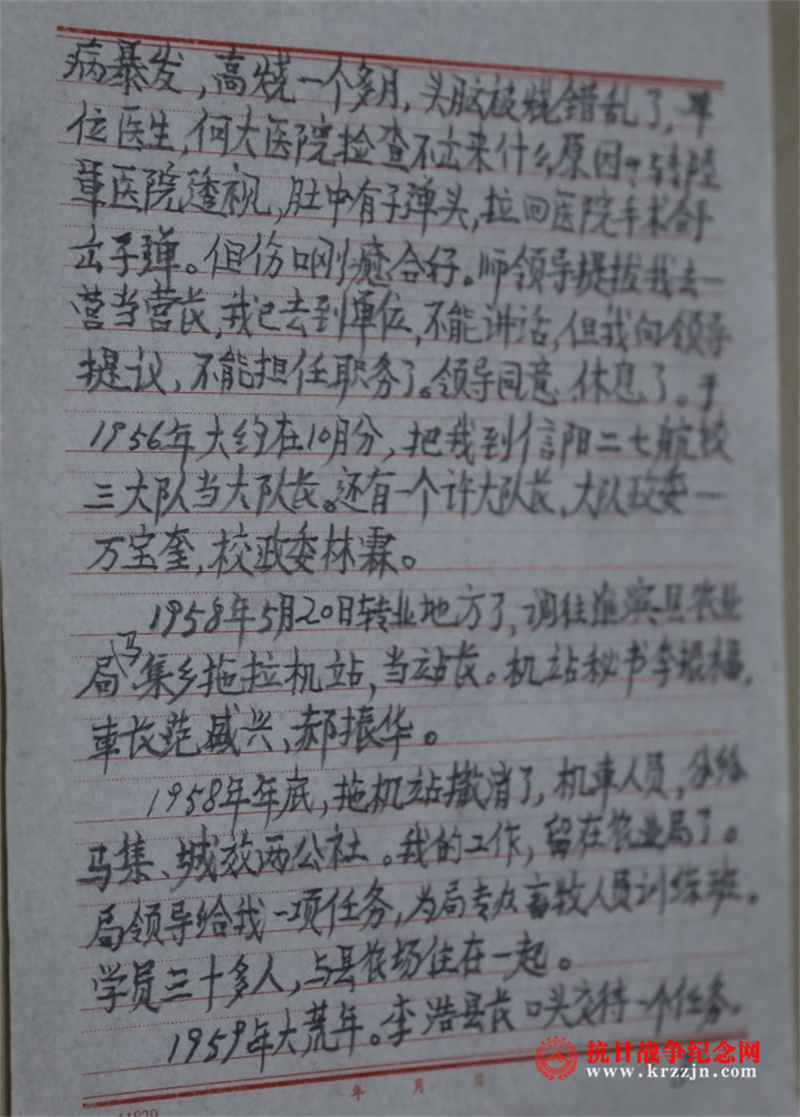 病暴发，高烧一个多月，头脑被烧错乱了，单
位医生，何大医院检查不出来什么原因，与
军医院透视，肚中有子弹头，拉回医院手术
出子弹。但伤口刚癒合好。师领导提拔我去一
营当营长，我已去到单位，不能讲话，但我向领导
提议，不能担任职务了。领导同意休息了。于
1956年大约在10月分，把我到信阳二七航校
三大队当大队长。还有一个许大队长，大队政委一
万宝奎，校政委林霖。
1958年5月20日转业地方了，调往淮滨县农业
局马集乡拖拉机站，当站长。机站秘书李振福，
車长范盛兴，郝振华。
1958年年底，拖机站撤消了，机車人员，分给
马集、城效两公社。我的工作，留在农业局了。
局领导给我一项任务，为局专办畜牧人员训练班。
学员三十多人，与县农场住在一起。
1959年大荒年。李浩县长口头交待一个任务，
年 月 日
抗日战争纪念网
www.krzzjn.com